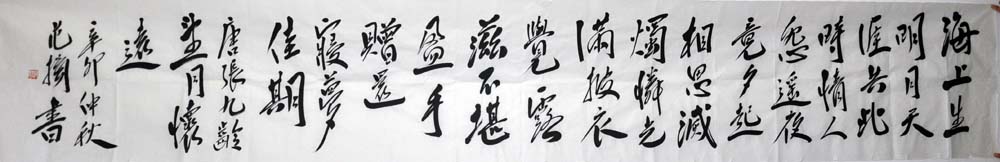 海上生
明月天
涯共此
時情人
怨遙夜
竟夕起
相思滅
燭憐光
滿披衣
覺露
滋不堪
盈手
贈還
寢夢
佳期
唐張九齡
望月懷
遠
辛卯仲秋
書